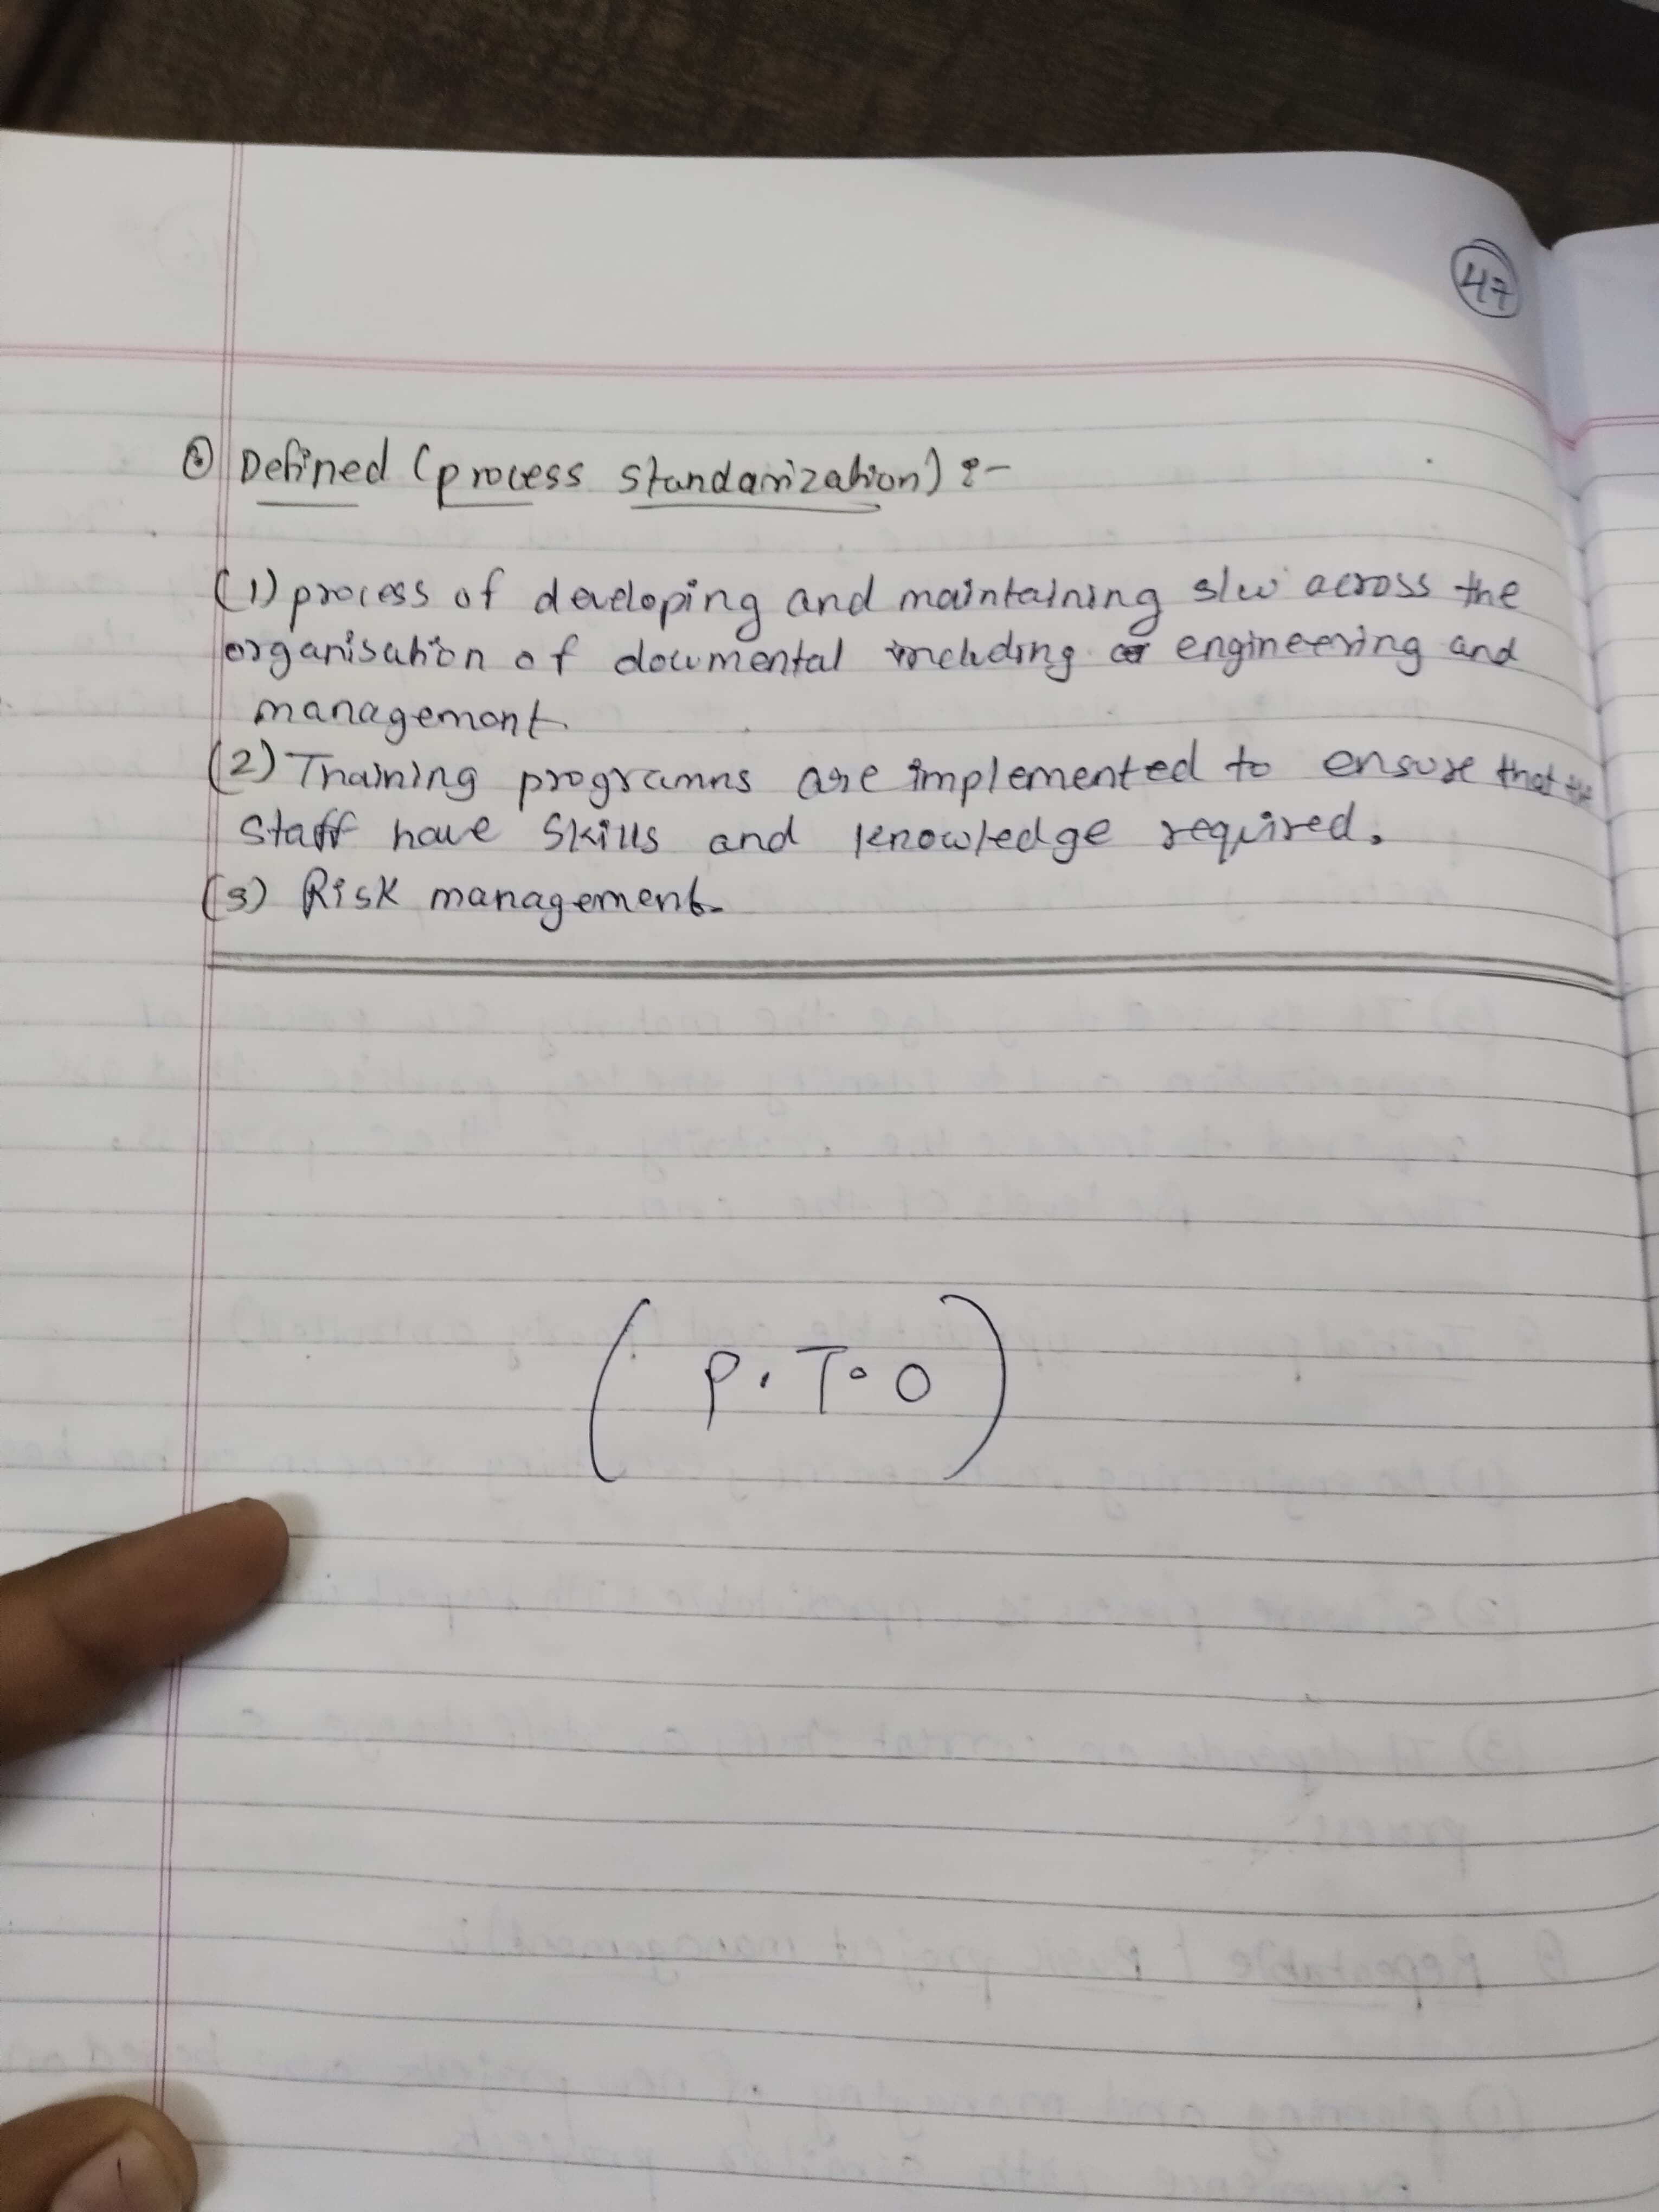 47
③ Defined (process standarization) :-
(1) process of developing and maintaining s/w across the
organisation of documental including engineering and
management.
(2) Training programns are implemented to ensure that the
staff have skills and knowledge required.
(3) Risk management.
(P.T.O)